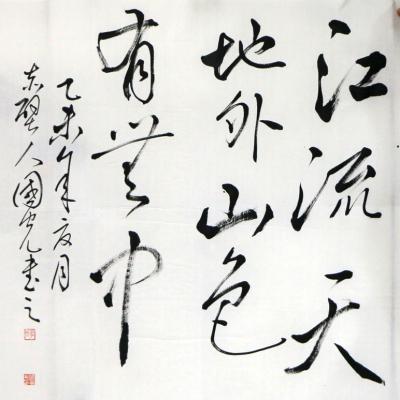 江流天
地外山色
有无中
乙未年夏月
赤壁人国光书之